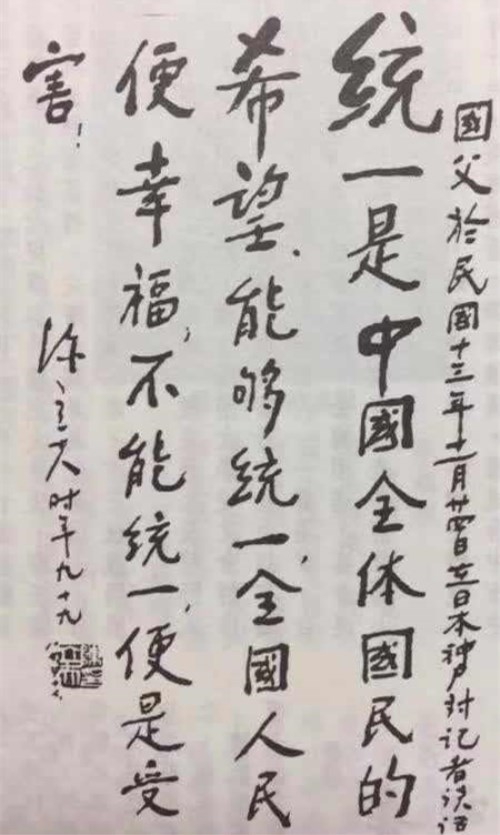 國父於民國十三年十一月廿四日在日本神户对记者谈话
統一是中國全体國民的
希望、能够統一,全國人民
便幸福,不能統一,便是受
害!
陳立夫时年九十九